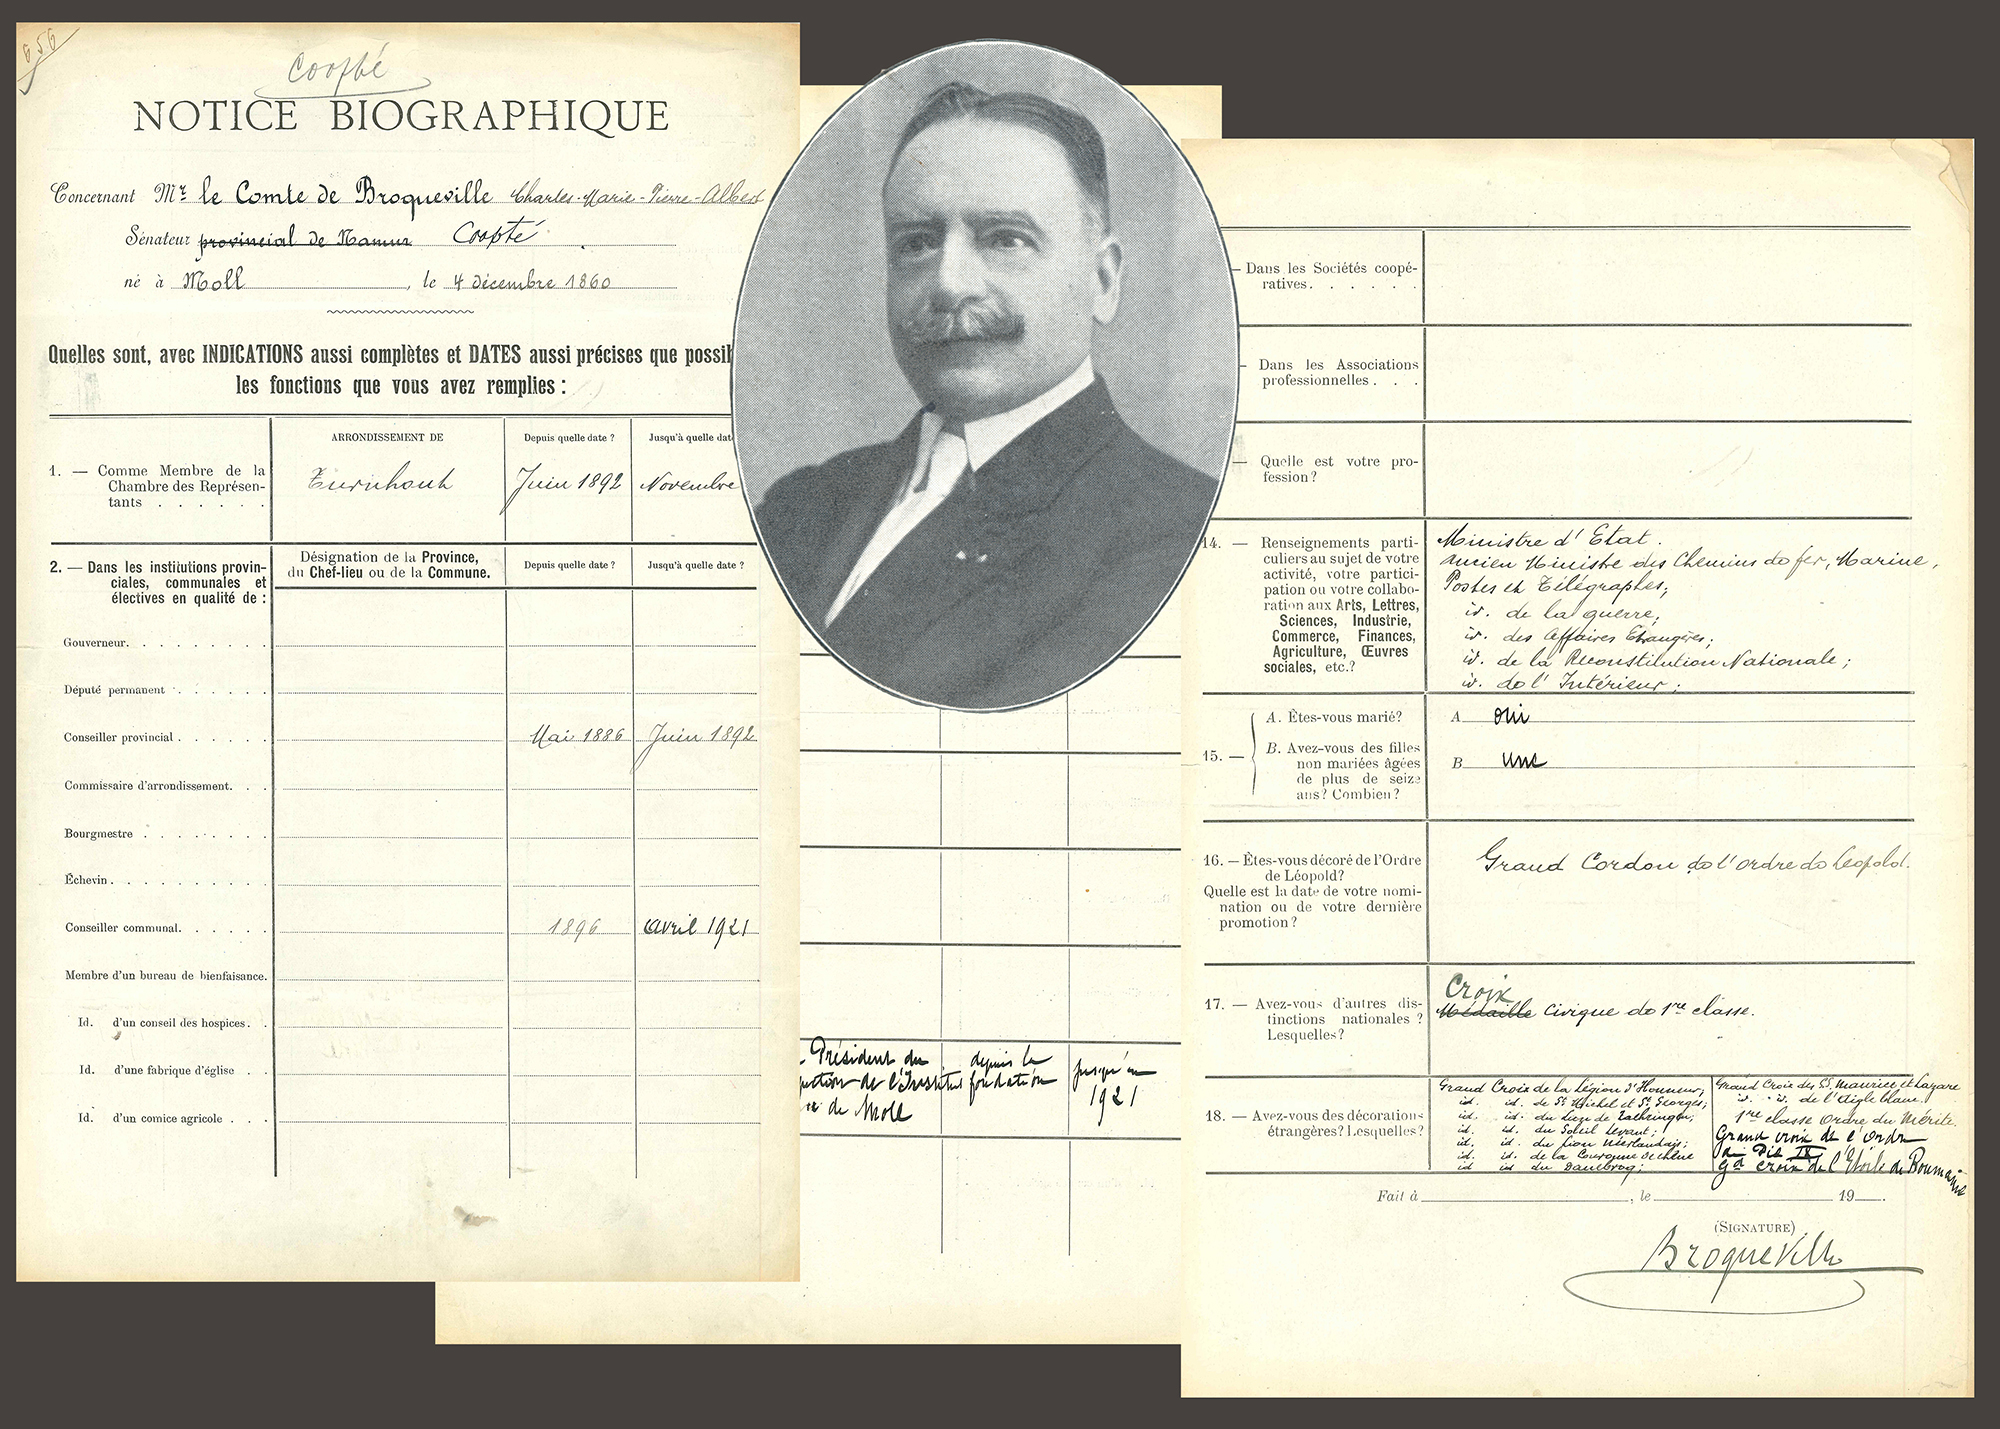 656
Coopté
NOTICE BIOGRAPHIQUE
Concernant Mr le Comte de Broqueville Charles-Marie-Pierre-Albert
Sénateur provincial de Namur Coopté
né à Moll, le 4 décembre 1860
Quelles sont, avec INDICATIONS aussi complètes et DATES aussi précises que possi
les fonctions que vous avez remplies :
ARRONDISSEMENT DE Depuis quelle date ? Jusqu'à quelle dat
1. — Comme Membre de la
Chambre des Représen-
tants . . . . . .
Turnhout Juin 1892 Novembre
2. — Dans les institutions provin-
ciales, communales et
électives en qualité de :
Désignation de la Province,
du Chef-lieu ou de la Commune.
Depuis quelle date ? Jusqu'à quelle date ?
Gouverneur. . . . . . . . .
Député permanent . . . . . .
Conseiller provincial . . . . . . Mai 1886 Juin 1892
Commissaire d'arrondissement. . .
Bourgmestre . . . . . . . .
Échevin . . . . . . . . . .
Conseiller communal. . . . . . 1896 avril 1921
Membre d'un bureau de bienfaisance.
Id. d'un conseil des hospices. .
Id. d'une fabrique d'église . .
Id. d'un comice agricole . . .
Président du
ection de l'Institut
de Moll
depuis la
fondation
jusqu'en
1921
— Dans les Sociétés coopé-
ratives. . . . . .
— Dans les Associations
professionnelles . . .
— Quelle est votre pro-
fession?
14. — Renseignements parti-
culiers au sujet de votre
activité, votre partici-
pation ou votre collabo-
ration aux Arts, Lettres,
Sciences, Industrie,
Commerce, Finances,
Agriculture, Œuvres
sociales, etc.?
Ministre d'Etat.
Ancien Ministre des Chemins de fer, Marine,
Postes et Télégraphes;
id. de la guerre;
id. des Affaires Etrangères;
id. de la Reconstitution Nationale;
id. de l'Intérieur;
15. — A. Êtes-vous marié?
A oui
B. Avez-vous des filles
non mariées âgées
de plus de seize
ans? Combien?
B une
16. — Êtes-vous décoré de l'Ordre
de Léopold?
Quelle est la date de votre nomi-
nation ou de votre dernière
promotion?
Grand Cordon de l'ordre de Léopold.
17. — Avez-vous d'autres dis-
tinctions nationales ?
Lesquelles?
Croix
Médaille Civique de 1re classe.
18. — Avez-vous des décorations
étrangères? Lesquelles?
Grand Croix de la Légion d'Honneur;
id. id. de St Michel et St Georges;
id. id. du Lion de Zaehringen;
id. id. du Soleil Levant;
id. id. du Lion Néerlandais;
id. id. de la Couronne de chêne
id id du Danebrog;
Grand Croix des SS. Maurice et Lazare
id. id. de l'Aigle blanc.
1re classe Ordre du Mérite.
Grand croix de l'Ordre
de Pie IX
Gd croix de l'Etoile de Roumanie
Fait à , le 19 .
(SIGNATURE)
Broqueville